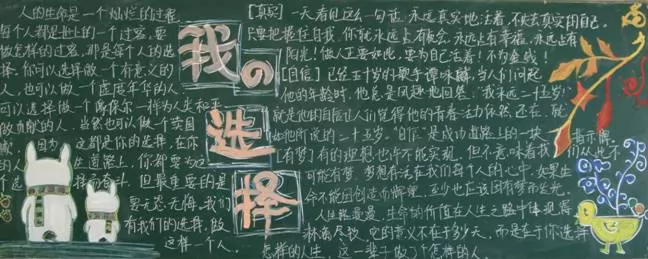 人的生命是一个灿烂的过程
每个人都是世上的一个过客，要
做怎样的过客，那是每个人的选
择。你可以选择做一个有意义的
人，也可以做一个虚度年华的人
可以选择做一个
做贡献的人，当然也可以做一个卖国
贼！因为，这都是你的选择，在你
的人生道路上，你都要为这
个选择而奋斗。但最重要的是
要无怨无悔，我们
有我们的选择，做
这样一个人。
我の选择
[真实] 一天看见这么一句话，永远真实地活着，不失去真实的自己。
只要把握住自我，你就永远会有机会，永远会有幸福，永远会有
阳光！做人正要如此，要为自己活着！不为金钱！
[自信] 已经五十岁的歌手谭咏麟，当人们问起
他的年龄时，他总是风趣地回答，“我永远二十五岁”
就是他的自信让人们觉得他的青春活力依然还在，就
如他所说的二十五岁。“自信”是成功道路上的一块指示牌。
[有梦] 有的理想也许不能实现，但不意味着我们人生不
可能有梦，梦想存活在我们每个人的心中，如果生
命不能因创造而辉煌，至少也应该因有梦而发光。
人生路漫漫，生命的价值在人生之路中体现得
淋漓尽致，它的意义不在于多少天，而是在于你选择
怎样的人生，这一辈子做了个怎样的人。